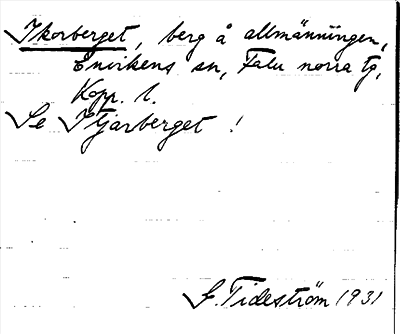 Ikorberget, berg å allmänningen,
Envikens sn, Falu norra tg,
Kopp. l.
Se Itjarberget !
G. Tideström 1931